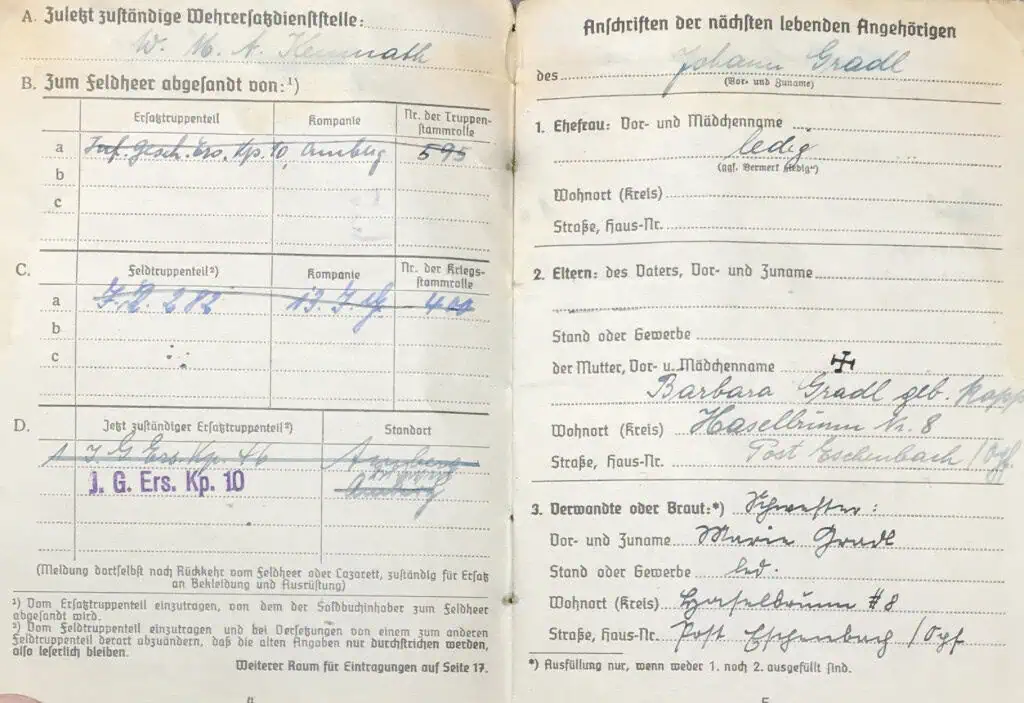 A. Zuletzt zuständige Wehrersatzdienststelle:
W. M. A. Kemnath
B. Zum Feldheer abgesandt von:¹)
Ersatztruppenteil Kompanie Nr. der Truppenstammrolle
a Inf. Gesch. Ers. Kp. 10, Amberg 595
b
c
C. Feldtruppenteil²) Kompanie Nr. der Kriegsstammrolle
a 13. J.G.
b
c
D. Jetzt zuständiger Ersatztruppenteil²) Standort
J G Ers. Kp. 46 Amberg
J. G. Ers. Kp. 10 Amberg
(Meldung dortselbst nach Rückkehr vom Feldheer oder Lazarett, zuständig für Ersatz
an Bekleidung und Ausrüstung)
¹) Vom Ersatztruppenteil einzutragen, von dem der Soldbuchinhaber zum Feldheer
abgesandt wird.
²) Vom Feldtruppenteil einzutragen und bei Versetzungen von einem zum anderen
Feldtruppenteil derart abzuändern, daß die alten Angaben nur durchstrichen werden,
also leserlich bleiben.
Weiterer Raum für Eintragungen auf Seite 17.
4
Anschriften der nächsten lebenden Angehörigen
des Johann Gradl
(Vor- und Zuname)
1. Ehefrau: Vor- und Mädchenname
ledig
(ggf. Vermerk „ledig“)
Wohnort (Kreis)
Straße, Haus-Nr.
2. Eltern: des Vaters, Vor- und Zuname
Stand oder Gewerbe
der Mutter, Vor- u. Mädchenname
Barbara Gradl geb.
Wohnort (Kreis) Haselbrunn Nr. 8
Straße, Haus-Nr. Post Eschenbach / Opf.
3. Verwandte oder Braut:*) Schwester:
Vor- und Zuname Marie Gradl
Stand oder Gewerbe led.
Wohnort (Kreis) Haselbrunn # 8
Straße, Haus-Nr. Post Eschenbach / Opf
*) Ausfüllung nur, wenn weder 1. noch 2. ausgefüllt sind.
5